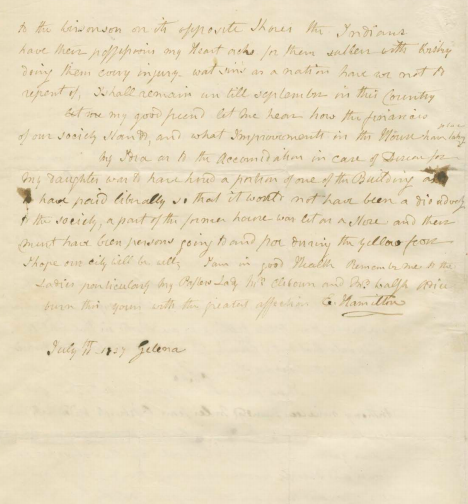 to the on its opposite Shores the Indians
have their possession my Heart achs for them with
doing them every injury. what Sins as a nation have we not to
repent of, I shall remain un till September in this Country
Let me my good friend let me hear how the finances
of our society Stands, and what Improvements in the House have taken place
by or to the Accomodation in case of for
my daughter have hired a portion of one of the Building and
have paid literaly so that it would not have been a dis advantage
to the society, a part of the former house was let as a Store and there
must have been persons going to and fro during the yellow fever
I hope our city will be well, I am in good Health Remember me to the
Ladies particularly my Lady Mrs and Mrs
burn this yours with the greatest affection E. Hamilton
July 11 1837 Gelena